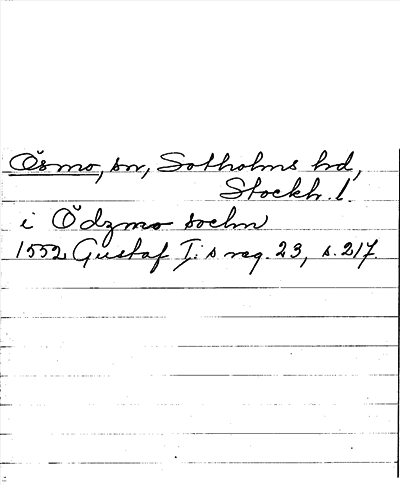 Ösmo, sn, Sotholms hd,
Stockh. l.
i Ödzmo sochn
1552 Gustaf I:s reg. 23, s. 217.